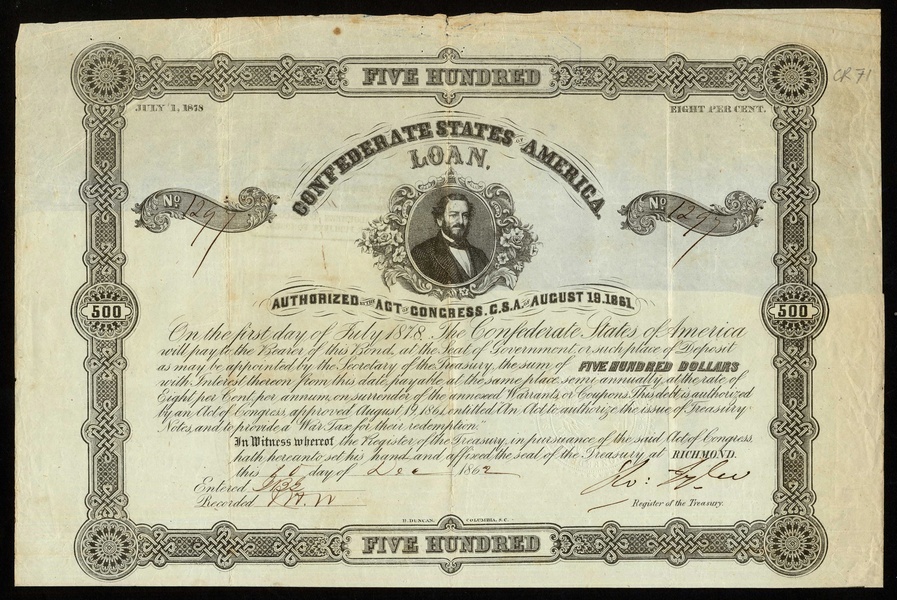 FIVE HUNDRED
CR 71
JULY 1, 1878
EIGHT PER CENT.
CONFEDERATE STATES OF AMERICA.
LOAN,
No 1297
No 1297
AUTHORIZED BY THE ACT OF CONGRESS, C.S.A. OF AUGUST 19.1861.
500
500
On the first day of July 1878. The Confederate States of America
will pay to the Bearer of this Bond, at the Seat of Government, or such place of Deposit
as may be appointed by the Secretary of the Treasury, the sum of FIVE HUNDRED DOLLARS
with Interest thereon from this date, payable at the same place semi annually, at the rate of
Eight per Cent, per annum, on surrender of the annexed Warrants, or Coupons. This debt is authorized
by an Act of Congress, approved August 19, 1861, entitled "An Act to authorize the issue of Treasury
Notes, and to provide a War Tax for their redemption."
In Witness whereof, the Register of the Treasury, in pursuance of the said Act of Congress,
hath hereunto set his hand and affixed the seal of the Treasury at RICHMOND.
this day of Dec 1862
Entered
Recorded
Ro: Tyler
Register of the Treasury.
B. DUNCAN, COLUMBIA, S.C.
FIVE HUNDRED